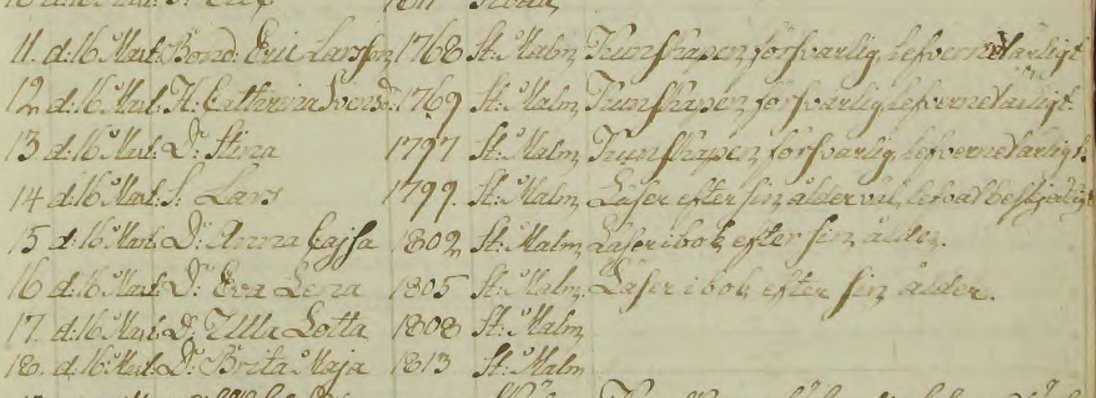 1811
11. d: 16 Mart: Bond: Eric Larsson 1768 St: Malm, Kunskapen försvarlig, lefvernet ärligt
12 d: 16 Mart: H. Catharina Svensd: 1769 St: Malm, Kunskapen försvarlig lefvernet ärligt
13 d: 16 Mart: D: Stina 1797 St: Malm, Kunskapen försvarlig, lefvernet ärligt.
14 d: 16 Mart: S: Lars 1799. St: Malm, Läser efter sin ålder väl, lefvad beskjedligt
15 d: 16 Mart: D: Anna Cajsa 1802 St: Malm, Läser i bok efter sin ålder.
16 d: 16 Mart: D: Eva Lena 1805 St: Malm. Läser i bok efter sin ålder.
17. d: 16 Mart: D: Ulla Lotta 1808 St: Malm
18. d: 16 Mart: D: Brita Maja 1813 St: Malm